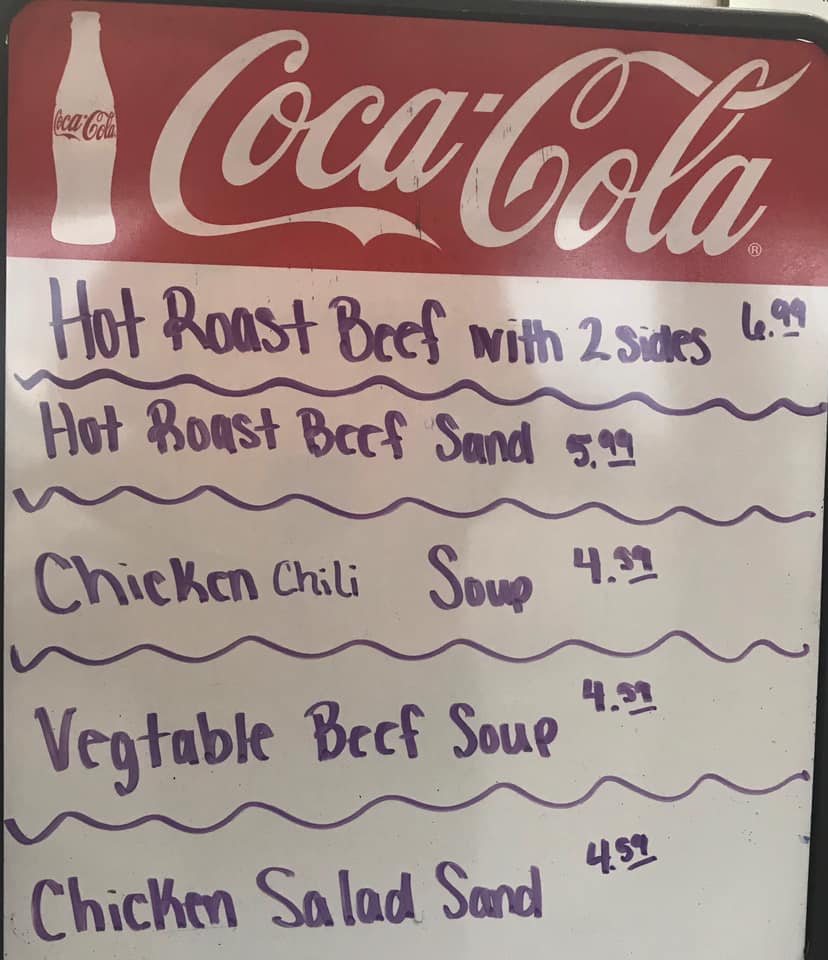 Coca-Cola
Coca-Cola ®
Hot Roast Beef with 2 sides 6.99
Hot Roast Beef Sand 5.99
Chicken Chili Soup 4.59
Vegtable Beef Soup 4.59
Chicken Salad Sand 4.59